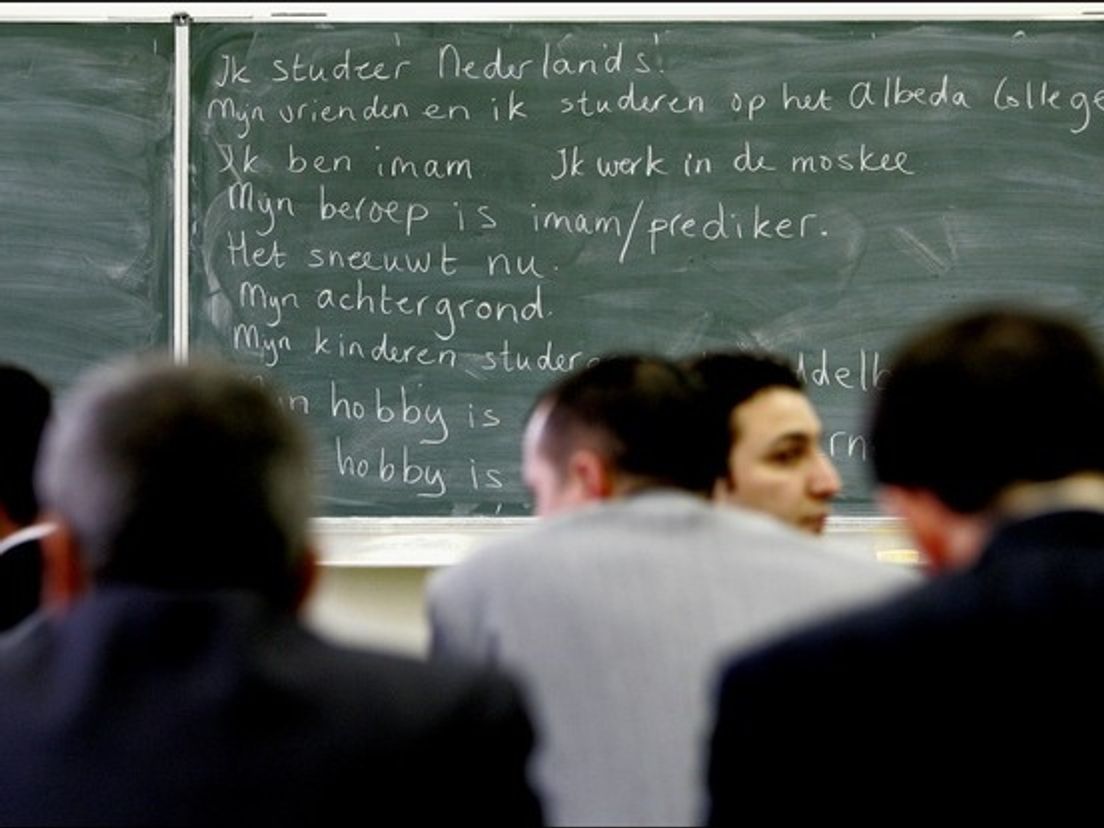 Ik studeer Nederlands!
Mijn vrienden en ik studeren op het Albeda College
Ik ben imam Ik werk in de moskee
Mijn beroep is imam/prediker.
Het sneeuwt nu.
Mijn achtergrond.
Mijn kinderen
hobby is
hobby is